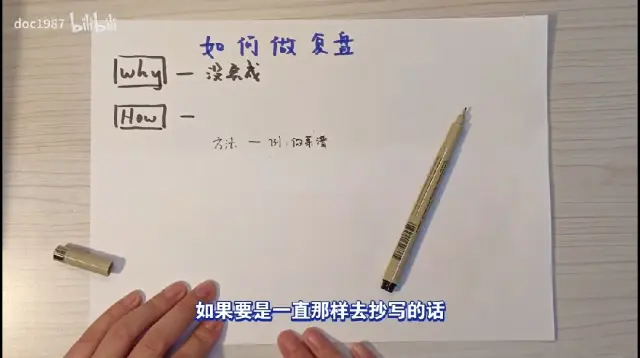 doc1987 bilibili
如何做复盘
Why — 没完成
How —
方法 — 例:做菜谱
如果要是一直那样去抄写的话